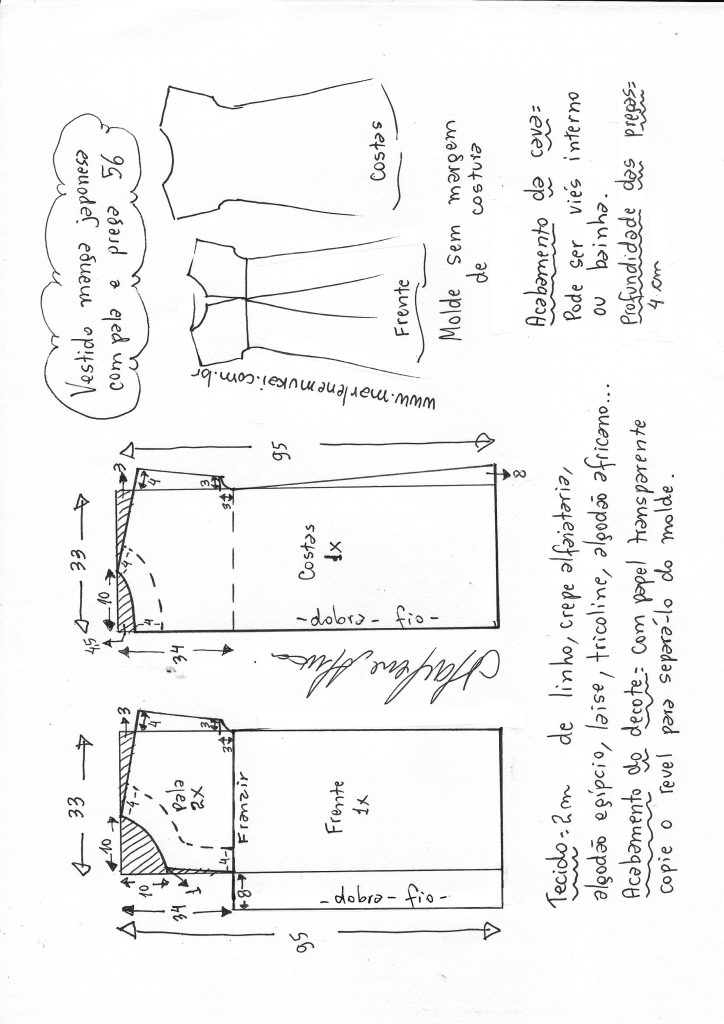 Vestido manga japonesa
com pala e prega 56
www.marlenemukai.com.br
Frente
Costas
Molde sem margem
de costura
Acabamento da cava=
Pode ser viés interno
ou bainha.
Profundidade das pregas=
4 cm
95
33
10
10
1
34
8
3
4
3
3
4
4
Pala
2x
Franzir
Frente
1x
-fio-dobra-
95
33
10
4,5
34
3
4
3
3
4
4
8
Costas
1x
-fio-dobra-
Tecido=2m de linho, crepe alfaiataria,
algodão egípcio, laise, tricoline, algodão africano...
Acabamento do decote= com papel transparente
copie o revel para separá-lo do molde.